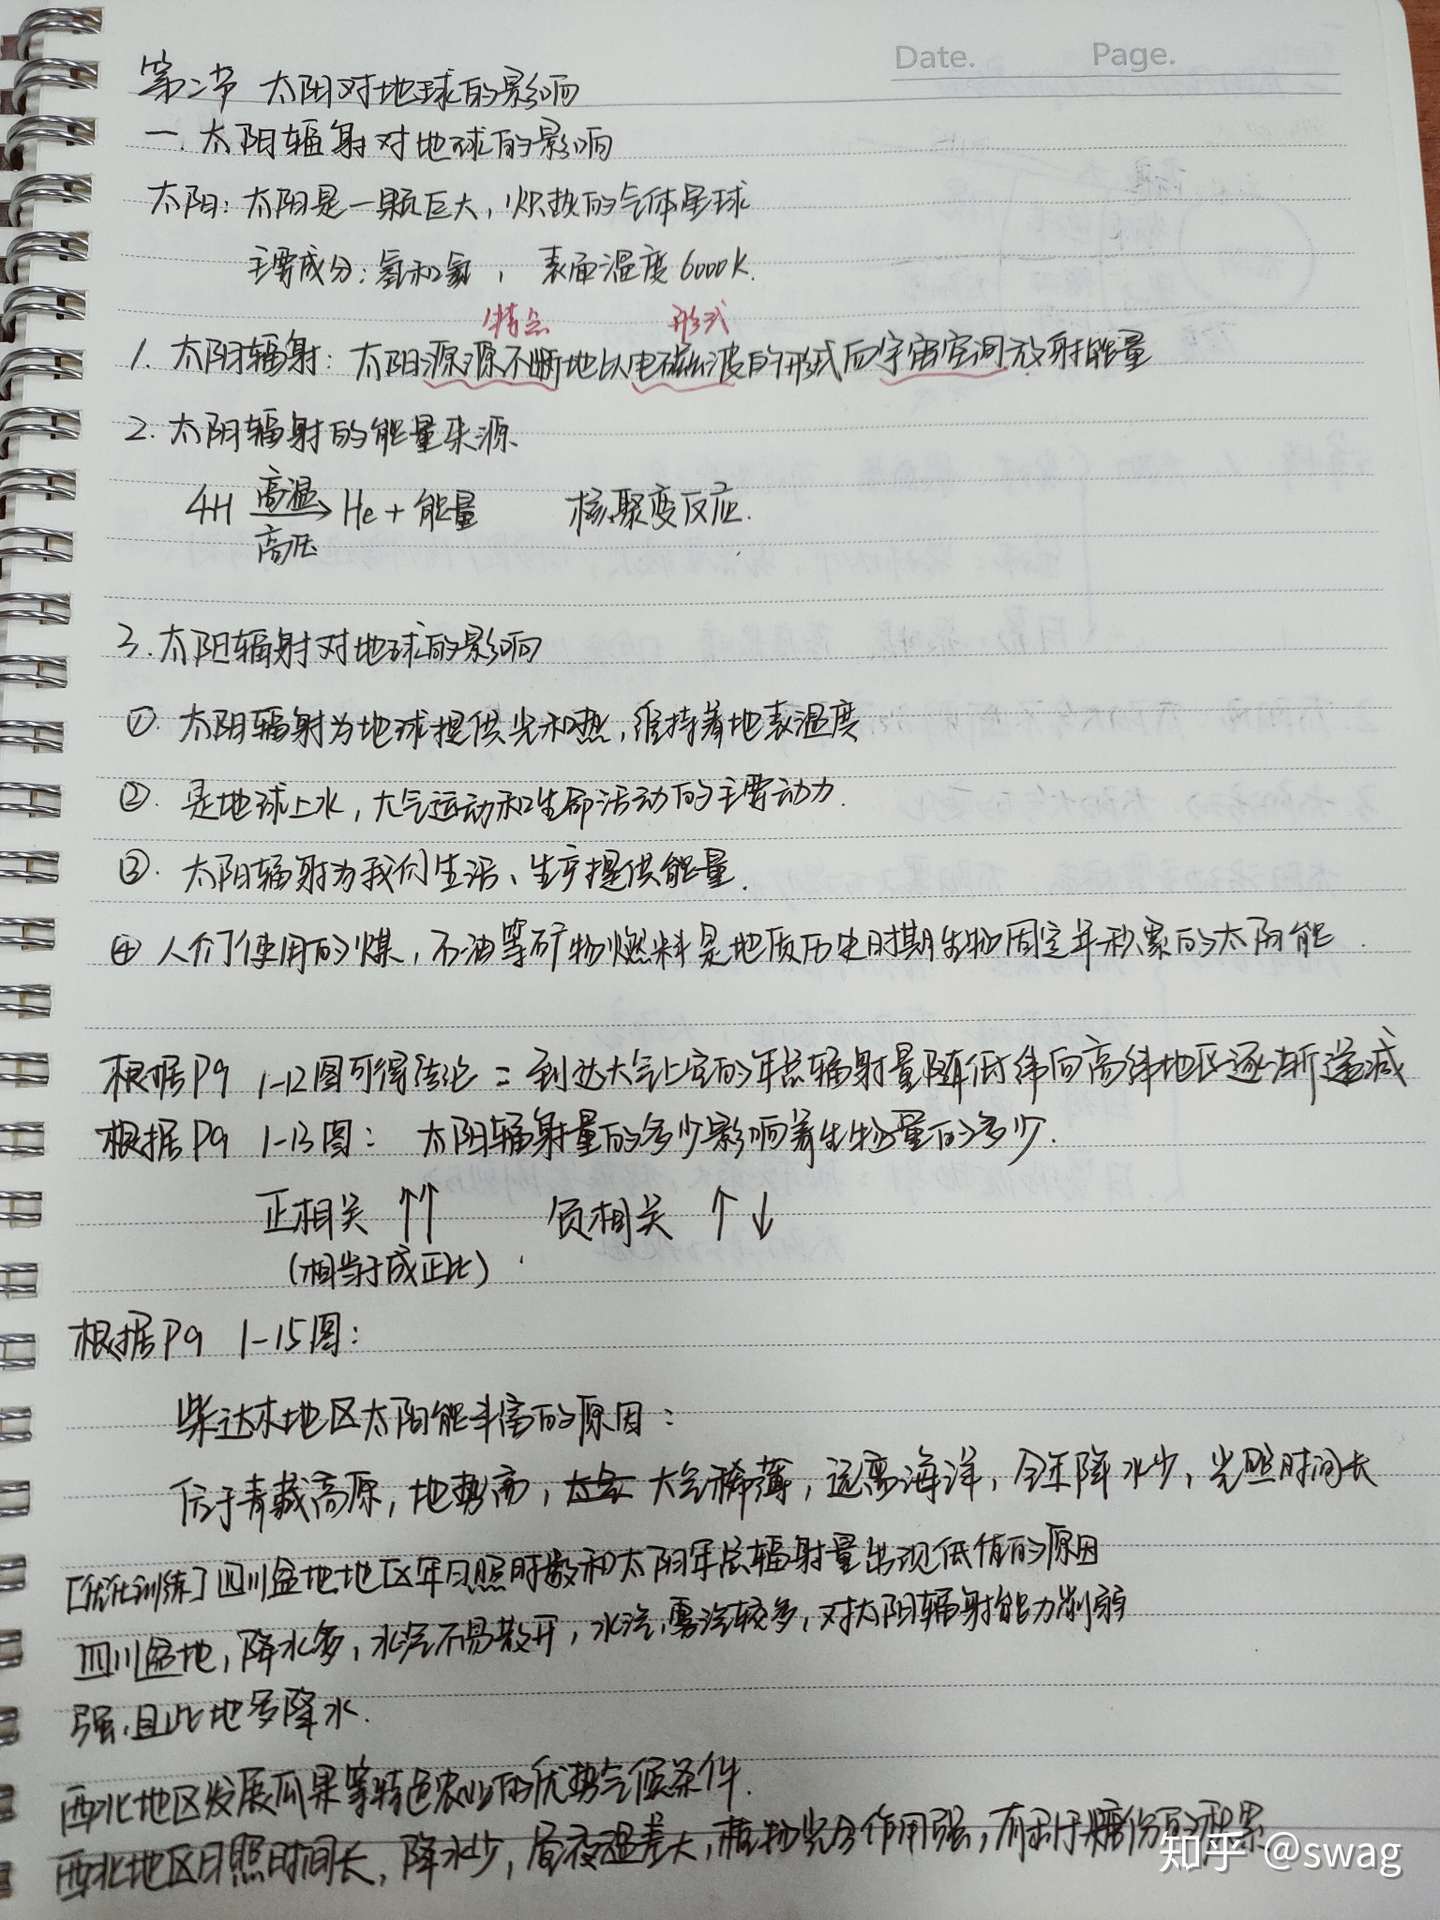 Date. Page.
第二节 太阳对地球的影响
一.太阳辐射对地球的影响
太阳:太阳是一颗巨大,炽热的气体星球
主要成分:氢和氦,表面温度6000K.
特点 形式
1.太阳辐射:太阳源源不断地以电磁波的形式向宇宙空间放射能量
2.太阳辐射的能量来源.
高温
4H → He+能量 核聚变反应.
高压
3.太阳辐射对地球的影响
① 太阳辐射为地球提供光和热,维持着地表温度
②. 是地球上水,大气运动和生命活动的主要动力.
③. 太阳辐射为我们生活、生产提供能量.
④ 人们使用的煤,石油等矿物燃料是地质历史时期生物固定并积累的太阳能.
根据P9 1-12图可得结论:到达大气上空的年总辐射量随低纬向高纬地区逐渐递减
根据P9 1-13图: 太阳辐射量的多少影响着生物量的多少.
正相关 ↑↑ 负相关 ↑↓
(相当于成正比).
根据P9 1-15图:
柴达木地区太阳能丰富的原因:
位于青藏高原,地势高,大气稀薄,远离海洋,全年降水少,光照时间长
[优化训练]四川盆地地区年日照时数和太阳年总辐射量出现低值的原因
四川盆地,降水多,水汽不易散开,水汽,雾汽较多,对太阳辐射能力削弱
强.且此地多降水.
西北地区发展瓜果等特色农业的优势气候条件.
西北地区日照时间长,降水少,昼夜温差大,植物光合作用强,有利于糖份的积累
知乎 @swag